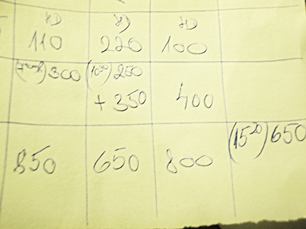 110 220 100
300 (10³⁰) 250
+ 350 400
850 650 800 (15²⁰) 650